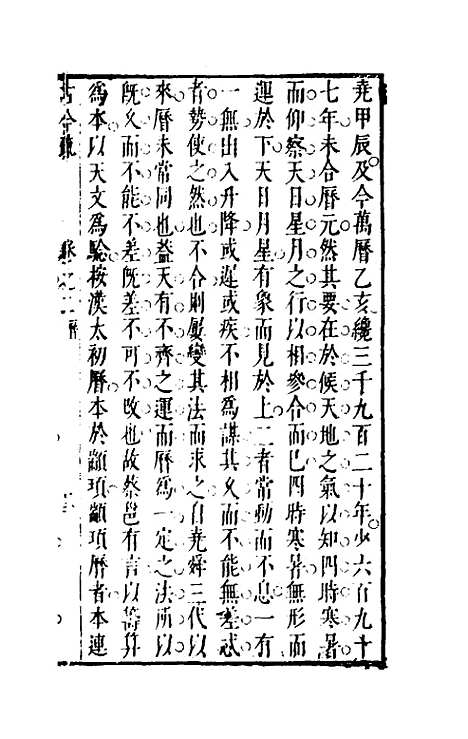 堯甲辰及今萬曆乙亥纔三千九百二十年少六百九十
七年未合曆元然其要在於候天地之氣以知四時寒暑
而仰察天日星月之行以相參合而已四時寒暑無形而
運於下天日月星有象而見於上二者常動而不息一有
一無出入升降或遲或疾不相為謀其久而不能無差忒
者勢使之然也不合則屢變其法而求之自堯舜三代以
來曆未常同也葢天有不齊之運而曆為一定之法所以
旣久而不能不差旣差不可不改也故蔡邕有言以籌算
為本以天文為驗按漢太初曆本於顓頊顓頊曆者本連
古今疏 卷之二 曆